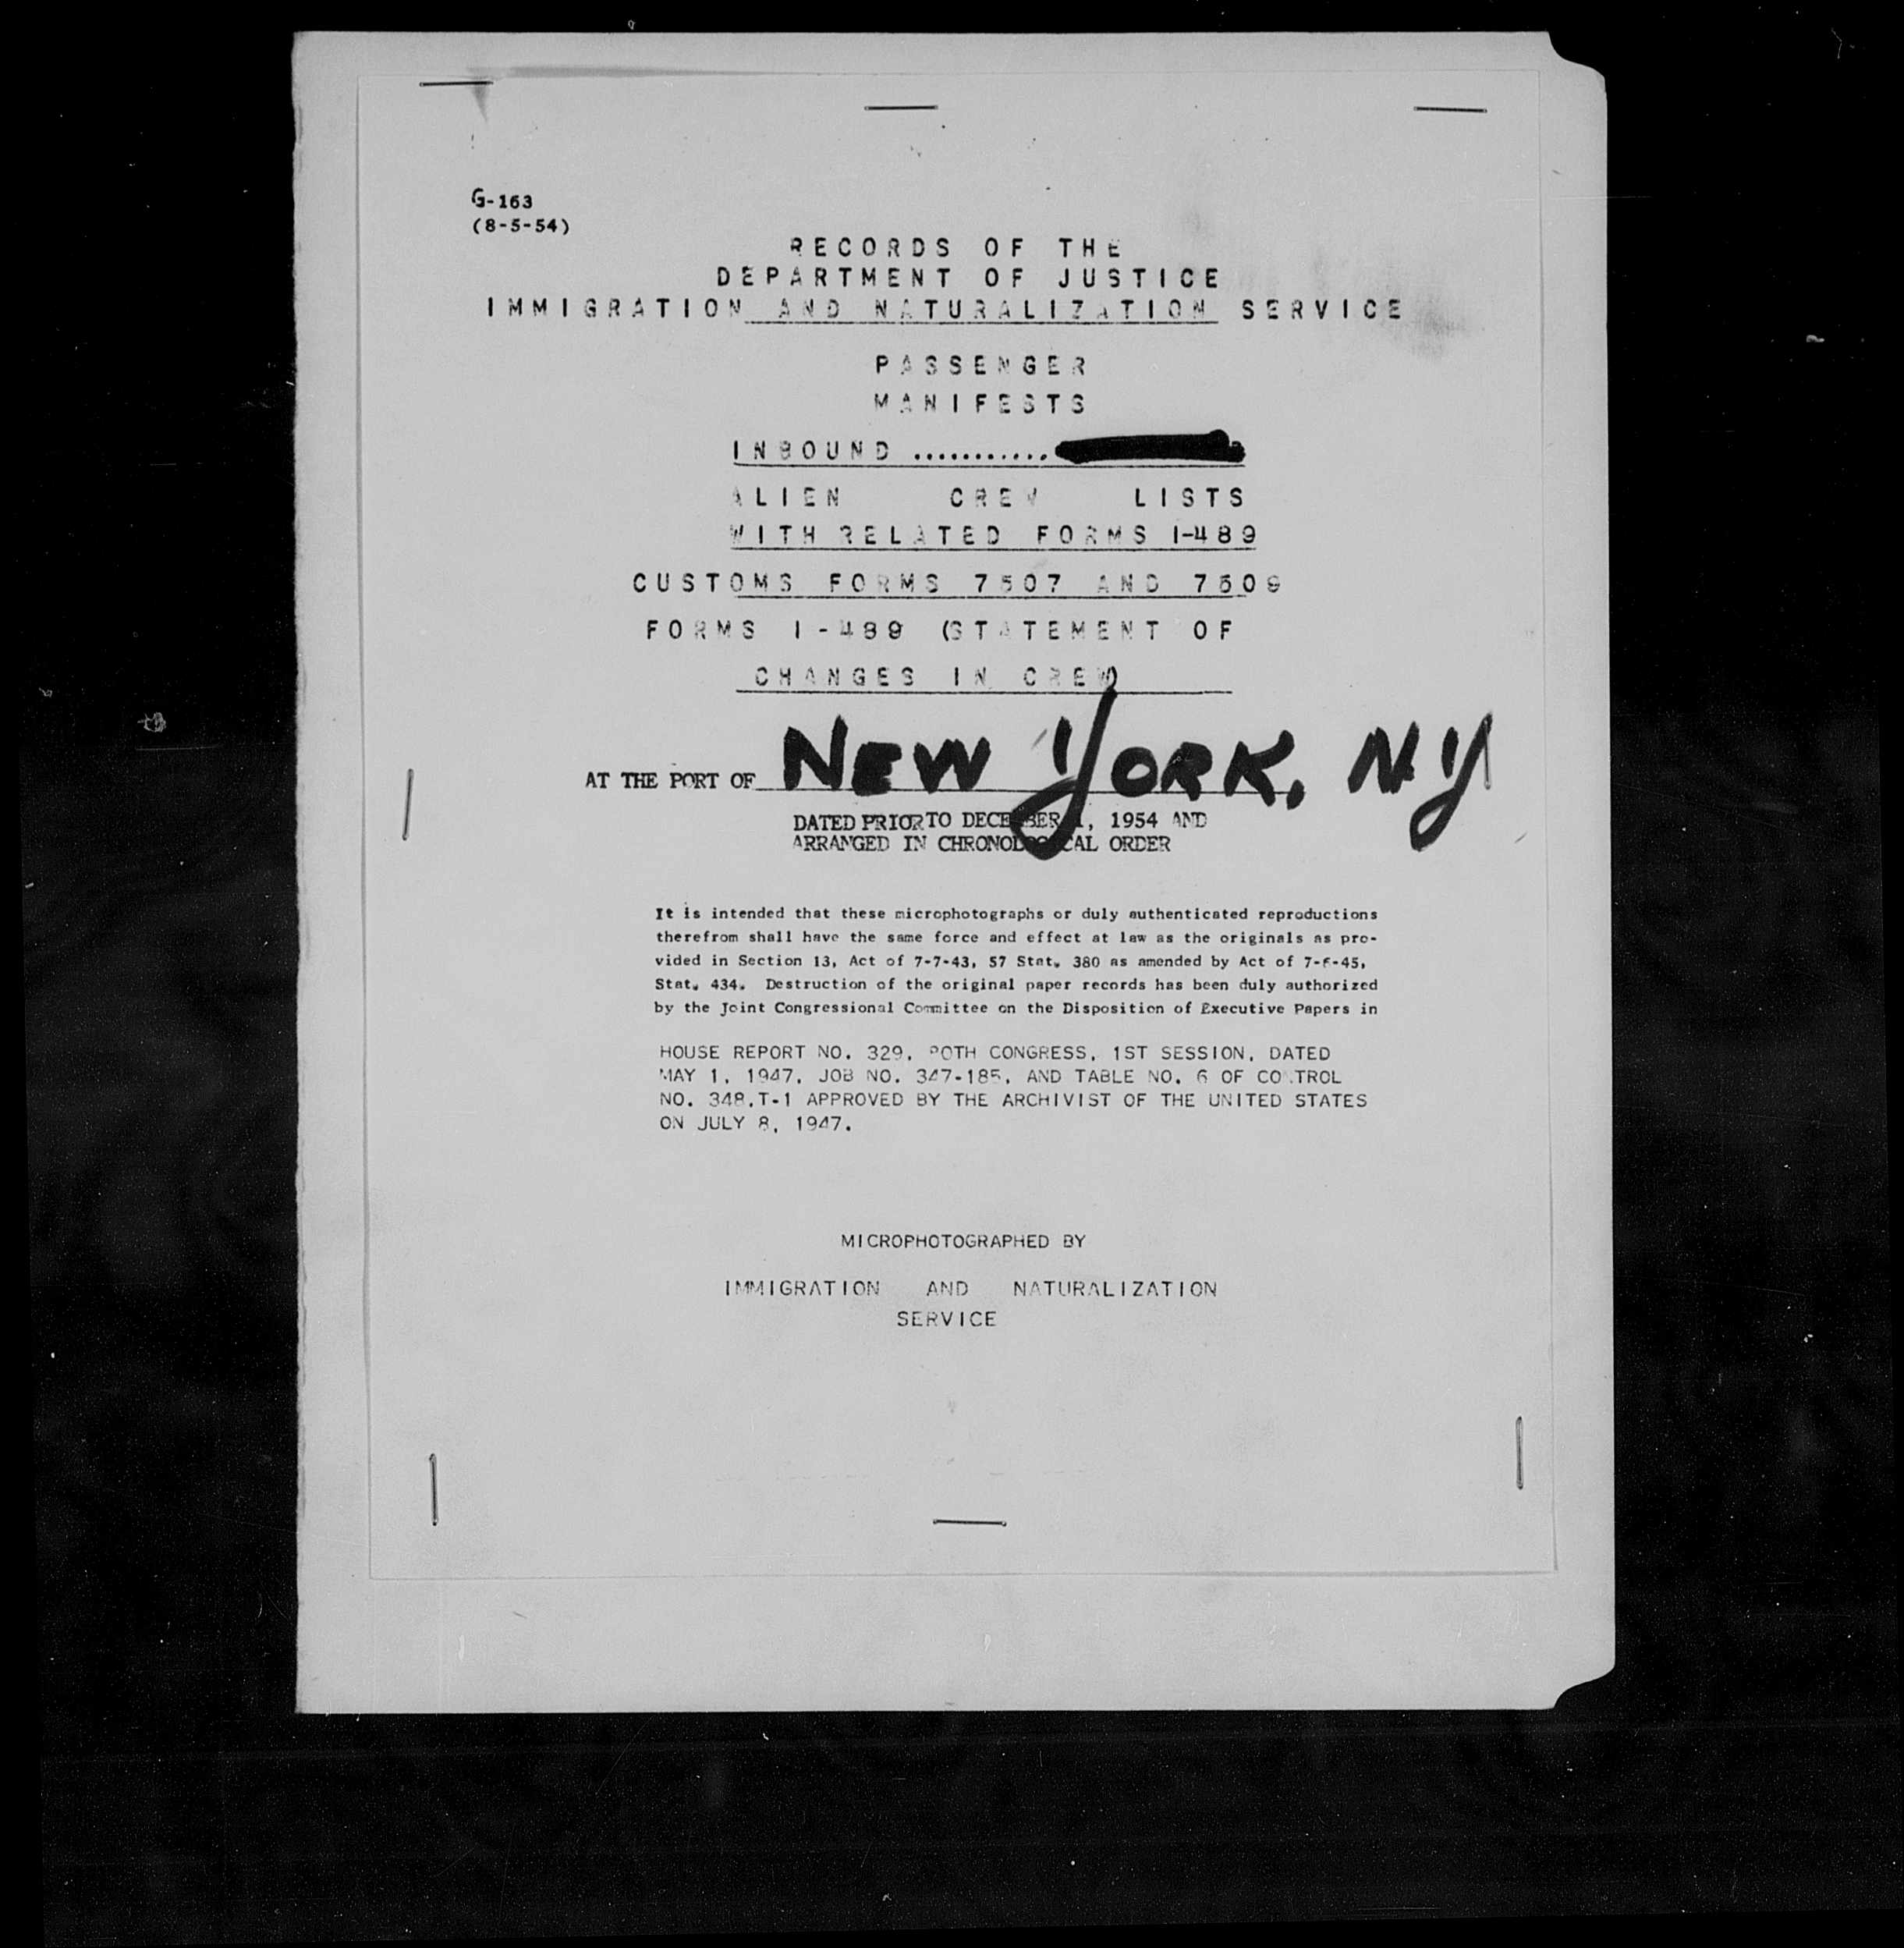 G-163
(8-5-54)
RECORDS OF THE
DEPARTMENT OF JUSTICE
IMMIGRATION AND NATURALIZATION SERVICE
PASSENGER
MANIFESTS
INBOUND ...........
ALIEN CREW LISTS
WITH RELATED FORMS I-489
CUSTOMS FORMS 7507 AND 7509
FORMS I-489 (STATEMENT OF
CHANGES IN CREW)
AT THE PORT OF NEW YORK, N.Y
DATED PRIOR TO DECEMBER 1, 1954 AND
ARRANGED IN CHRONOLOGICAL ORDER
It is intended that these microphotographs or duly authenticated reproductions
therefrom shall have the same force and effect at law as the originals as pro-
vided in Section 13, Act of 7-7-43, 57 Stat. 380 as amended by Act of 7-6-45,
Stat. 434. Destruction of the original paper records has been duly authorized
by the Joint Congressional Committee on the Disposition of Executive Papers in
HOUSE REPORT NO. 329, 80TH CONGRESS, 1ST SESSION, DATED
MAY 1, 1947, JOB NO. 347-185, AND TABLE NO. 6 OF CONTROL
NO. 348,T-1 APPROVED BY THE ARCHIVIST OF THE UNITED STATES
ON JULY 8, 1947.
MICROPHOTOGRAPHED BY
IMMIGRATION AND NATURALIZATION
SERVICE